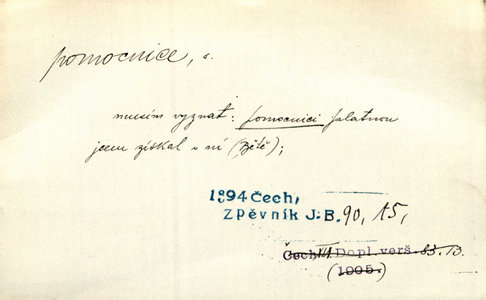 pomocnice, s.
musím vyznat: pomocnici platnou
jsem získal v ní (Bětě);
1894 Čech,
Zpěvník J.B. 90, 15,
Čech III. Dopl. verš. 83. B.
(1905.)